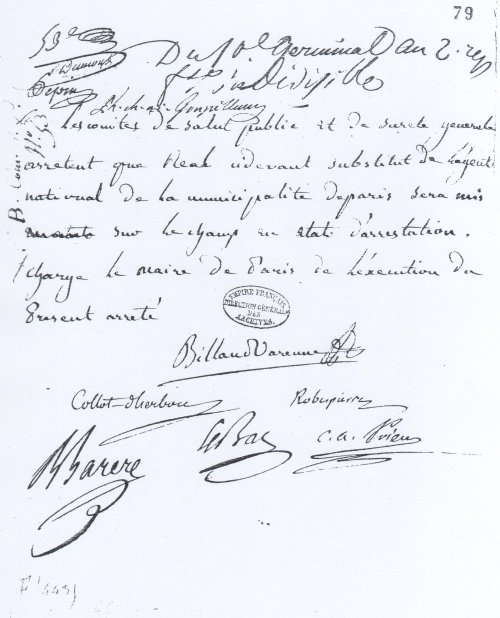 79
53e
Dumont
Pepin
Du 10 Germinal an 2. rep
fse indivisible
Les comités de salut public et de sureté generale
arretent que Real cidevant substitut de l'agent
national de la municipalité de paris sera mis
sur le champ en etat d'arrestation.
charge le maire de Paris de l'execution du
Present arreté
EMPIRE FRANÇAIS
DIRECTION GÉNÉRALE
DES
ARCHIVES.
Billaud Varenne
Collot-d'herbois
Robespierre
B Barere
Le Bas
C. A. Prieur